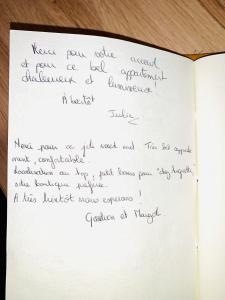 Merci pour votre accueil
et pour ce bel appartement
chaleureux et lumineux !
À bientôt
Julie
Merci pour ce joli week end. Très bel apparte
ment, confortable.
Localisation au top, petit bonus pour "chez huguette"
site boutique préférée.
A très bientôt nous espérons !
Gaëtan et Margot